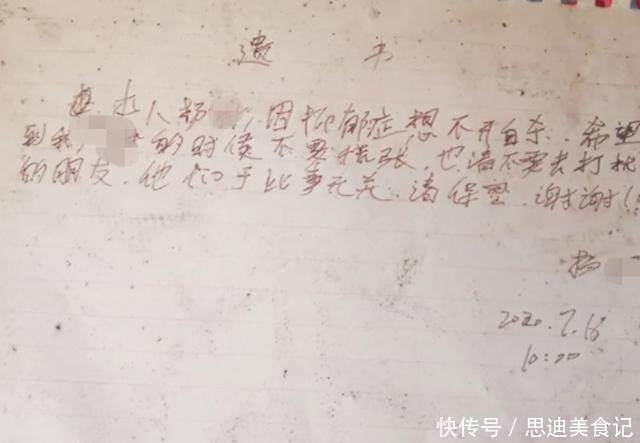 遗 书
本人杨 , 因抑郁症想不开自杀. 希望
到我 的时候不要慌张, 也请不要去打扰
的朋友. 他们于此事无关. 请保密. 谢谢!
杨
2020.7.16
10:00
快传号 / 思迪美食记